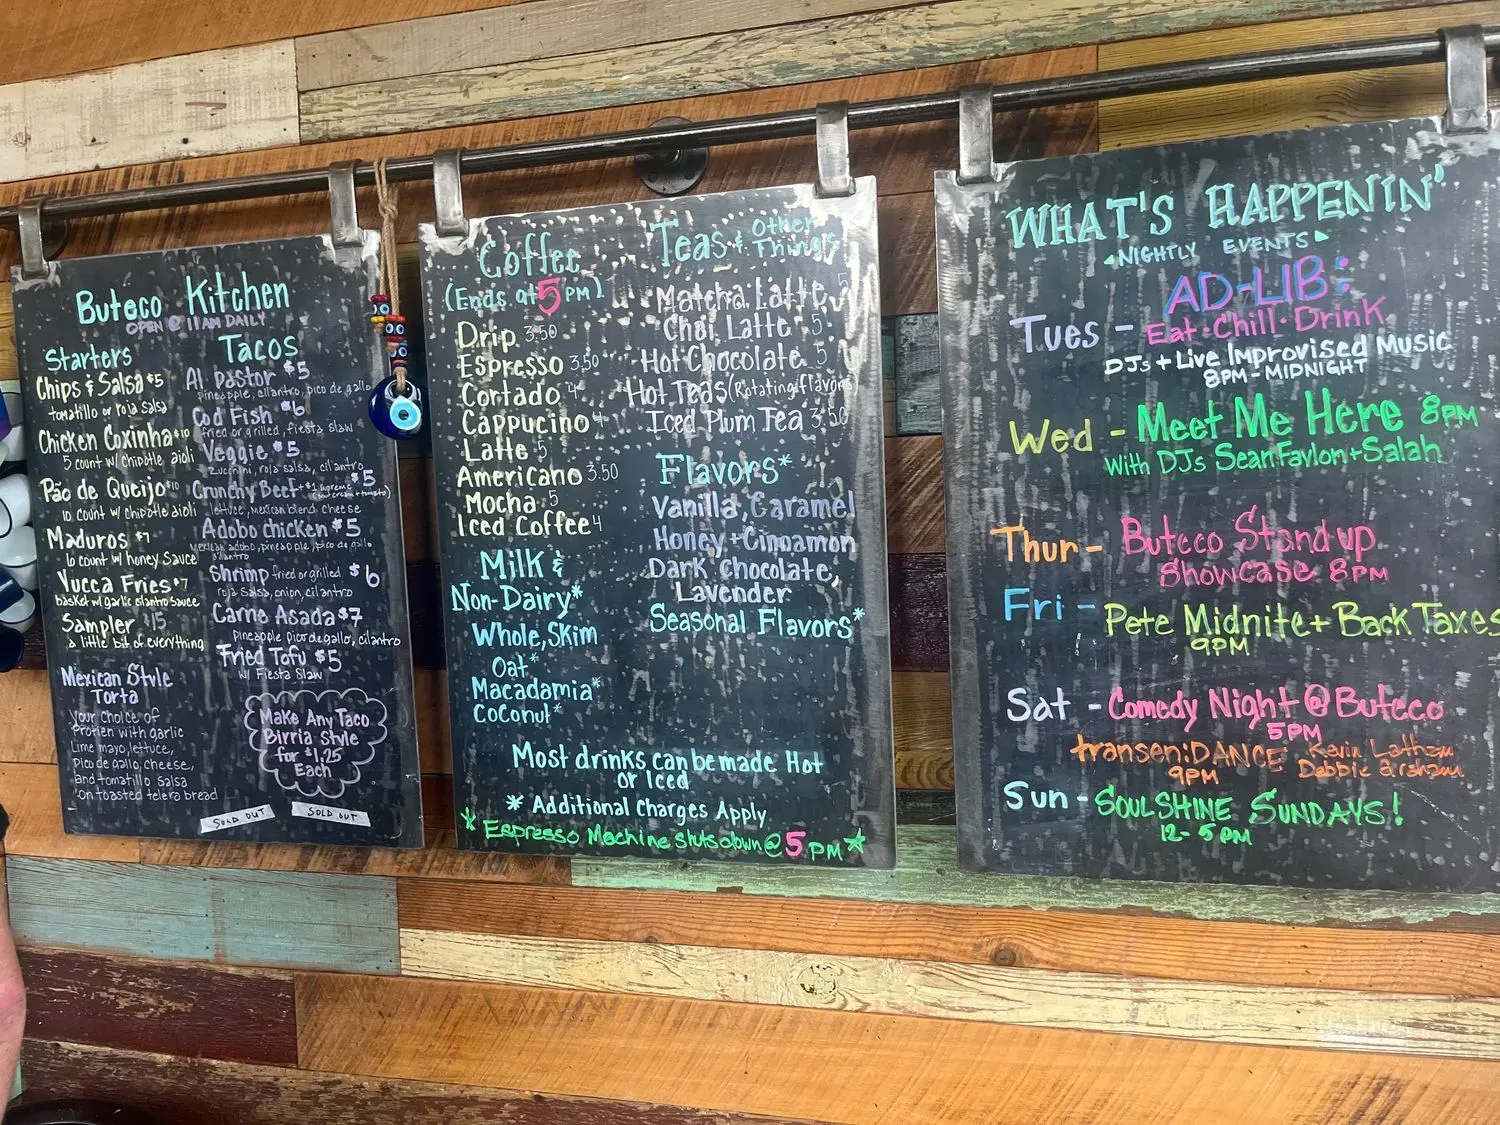 Buteco Kitchen
OPEN @ 11AM DAILY
Starters
Chips & Salsa $5
tomatillo or roja salsa
Chicken Coxinha $10
5 count w/ chipotle aioli
Pão de Queijo $10
10 count w/ chipotle aioli
Maduros $7
10 count w/ honey sauce
Yucca Fries $7
basket w/ garlic cilantro sauce
Sampler $15
a little bit of everything
Mexican Style
Torta
Your choice of
protien with garlic
Lime mayo, lettuce,
Pico de gallo, cheese,
and tomatillo salsa
on toasted telera bread
Tacos
Al Pastor $5
pineapple, cilantro, pico de gallo
Cod Fish $6
fried or grilled, fiesta slaw
Veggie $5
Zucchini, roja salsa, cilantro
Crunchy Beef +$1 supreme $5
(sour cream + tomato)
lettuce, mexican blend cheese
Adobo chicken $5
mexican adobo, pineapple, pico de gallo
cilantro
Shrimp fried or grilled $6
roja salsa, onion, cilantro
Carne Asada $7
pineapple pico de gallo, cilantro
Fried Tofu $5
w/ Fiesta Slaw
Make Any Taco
Birria Style
for $1.25
Each
SOLD OUT
SOLD OUT
Coffee
(Ends at 5 PM)
Drip 3.50
Espresso 3.50
Cortado 4
Cappucino 4
Latte 5
Americano 3.50
Mocha 5
Iced Coffee 4
Milk &
Non-Dairy*
Whole, Skim
Oat*
Macadamia*
Coconut*
Teas & Other
Things
Matcha Latte 5
Chai Latte 5
Hot Chocolate 5
Hot Teas (Rotating flavors)
Iced Plum Tea 3.50
Flavors*
Vanilla, Caramel
Honey + Cinnamon
Dark Chocolate,
Lavender
Seasonal Flavors*
Most drinks can be made Hot
or Iced
* Additional Charges Apply
* Espresso Machine shuts down @ 5 PM *
WHAT'S HAPPENIN'
NIGHTLY EVENTS
AD-LIB:
Tues - Eat · Chill · Drink
DJs + Live Improvised Music
8PM - MIDNIGHT
Wed - Meet Me Here 8PM
With DJs Sean Favlon + Salah
Thur - Buteco Stand up
Showcase 8PM
Fri - Pete Midnite + Back Taxes
9PM
Sat - Comedy Night @ Buteco
5PM
transen:DANCE Kevin Latham
9PM Debbie Graham
Sun - SOULSHINE SUNDAYS!
12-5PM